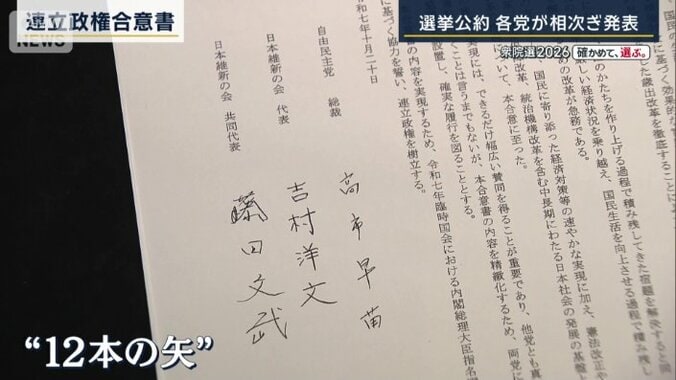 連立政権合意書
選挙公約 各党が相次ぎ発表
衆院選2026
確かめて、選ぶ。
た歳出改革を徹底することに
のかたちを作り上げる過程で積み残してきた宿題を解決すると同
しい経済状況を乗り越え、国民生活を向上させる
めの改革が急務である。
、国民に寄り添った経済対策等の速やかな実現に加え、憲法改正や
改革、統治機構改革を含む中長期にわたる日本社会の発展の基盤と
いて、本合意に至った。
実現には、できるだけ幅広い賛同を得ることが重要であり、他党とも真
くことは言うまでもないが、本合意書の内容を精緻化するため、両党に
設置し、確実な履行を図ることとする。
の内容を実現するため、令和七年臨時国会における内閣総理大臣指名
に基づく協力を誓い、連立政権を樹立する。
令和七年十月二十日
自由民主党 総裁
高市早苗
日本維新の会 代表
吉村洋文
日本維新の会 共同代表
藤田文武
“12本の矢”